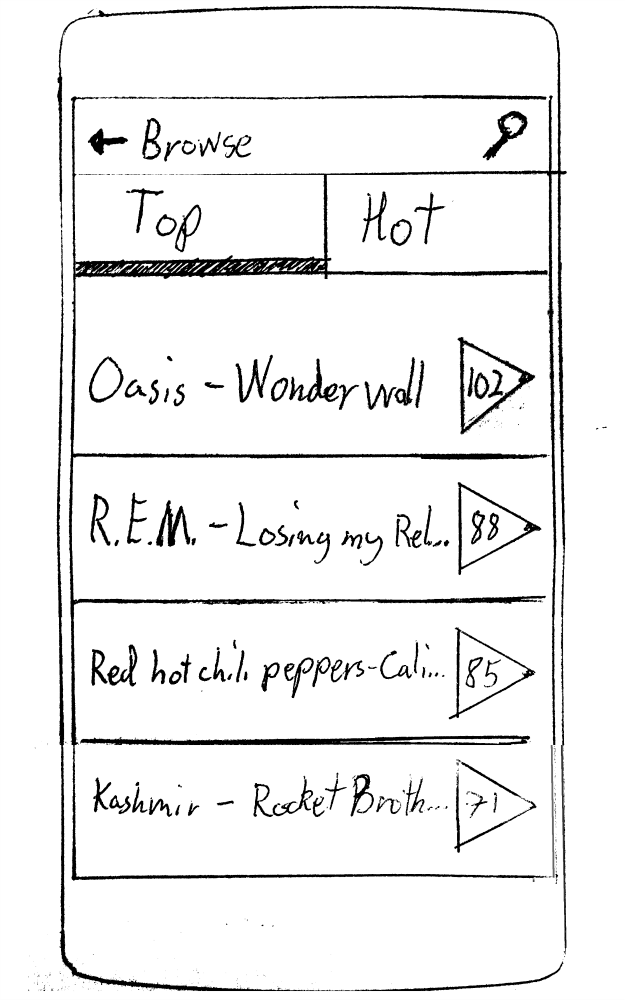 ← Browse
Top
Hot
Oasis - Wonderwall
102
R.E.M. - Losing my Rel...
88
Red hot chili peppers-Cali...
85
Kashmir - Rocket Broth...
71